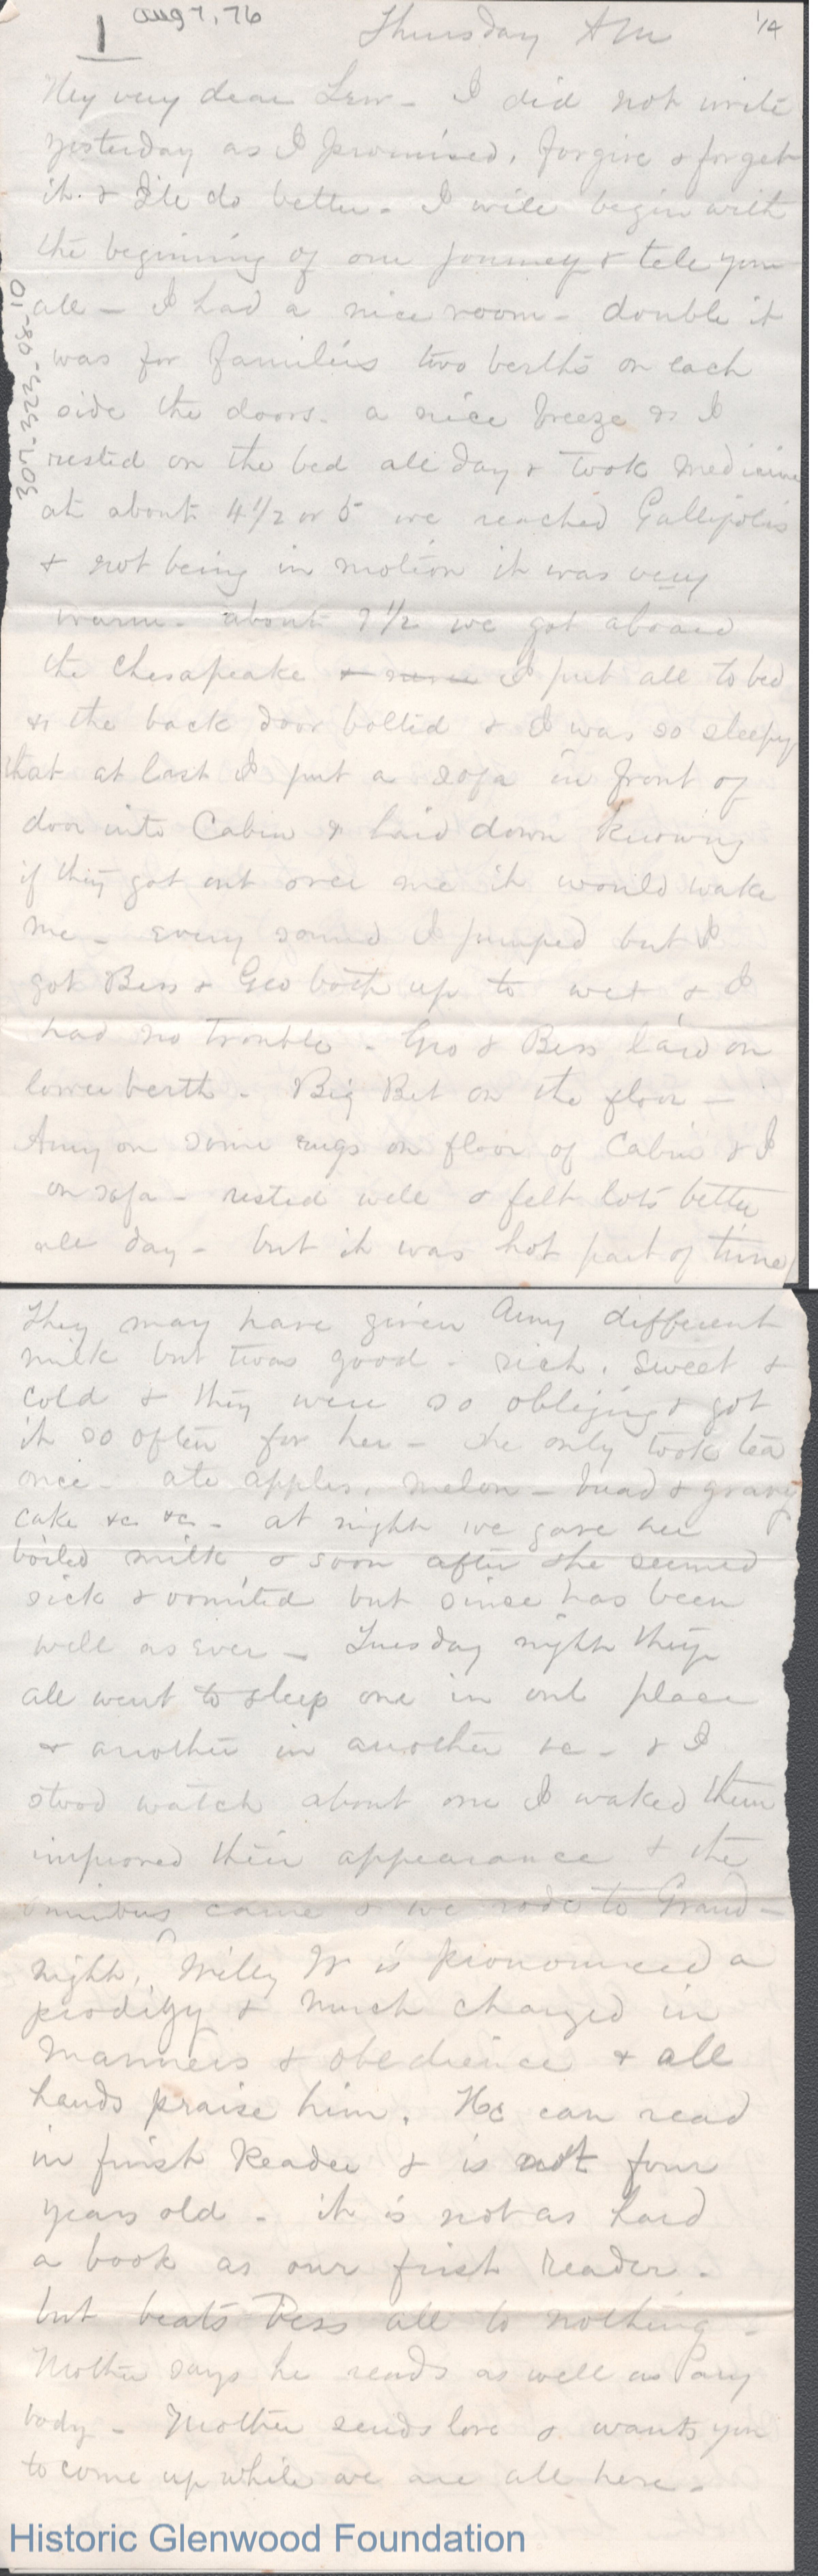 1 aug 7, 76 Thursday AM '14
My very dear Lew - I did not write
yesterday as I promised, forgive & forget
it. & I'le do better - I will begin with
the beginning of our journey & tell you
all - I had a nice room - double it
was for families two berths on each
side the doors - a nice breeze & I
rested on the bed all day & took medicine
at about 4 1/2 or 5 we reached Gallipolis
& not being in motion it was very
warm - about 9 1/2 we got aboard
the Chesapeake & I put all to bed
& the back door bolted & I was so sleepy
that at last I put a sofa in front of
door into Cabin & laid down knowing
if they got out over me it would wake
me - every sound I jumped but I
got Bess & Geo both up to wet & I
had no trouble - Geo & Bess laid on
lower berth - Big Bet on the floor -
Amy on some rugs on floor of Cabin & I
on sofa - rested well & felt lots better
all day - but it was hot part of time
307-323-08-10
They may have given Amy different
milk but twas good - rich, sweet &
cold & they were so obliging & got
it so often for her - she only took tea
once - ate apples, melon - bread & gravy
cake &c &c - at night we gave her
boiled milk & soon after she seemed
sick & vomited but since has been
well as ever - Tuesday night they
all went to sleep one in one place
& another in another &c - & I
stood watch about one I waked them
improved their appearance & the
omnibus came & we rode to Grand-
night, Willy W is pronounced a
prodigy & much changed in
manners & obedience & all
hands praise him. He can read
in first Reader & is not four
years old - it is not as hard
a book as our first reader -
but beats Bess all to nothing -
Mother says he reads as well as any
body - Mother sends love & wants you
to come up while we are all here -
Historic Glenwood Foundation